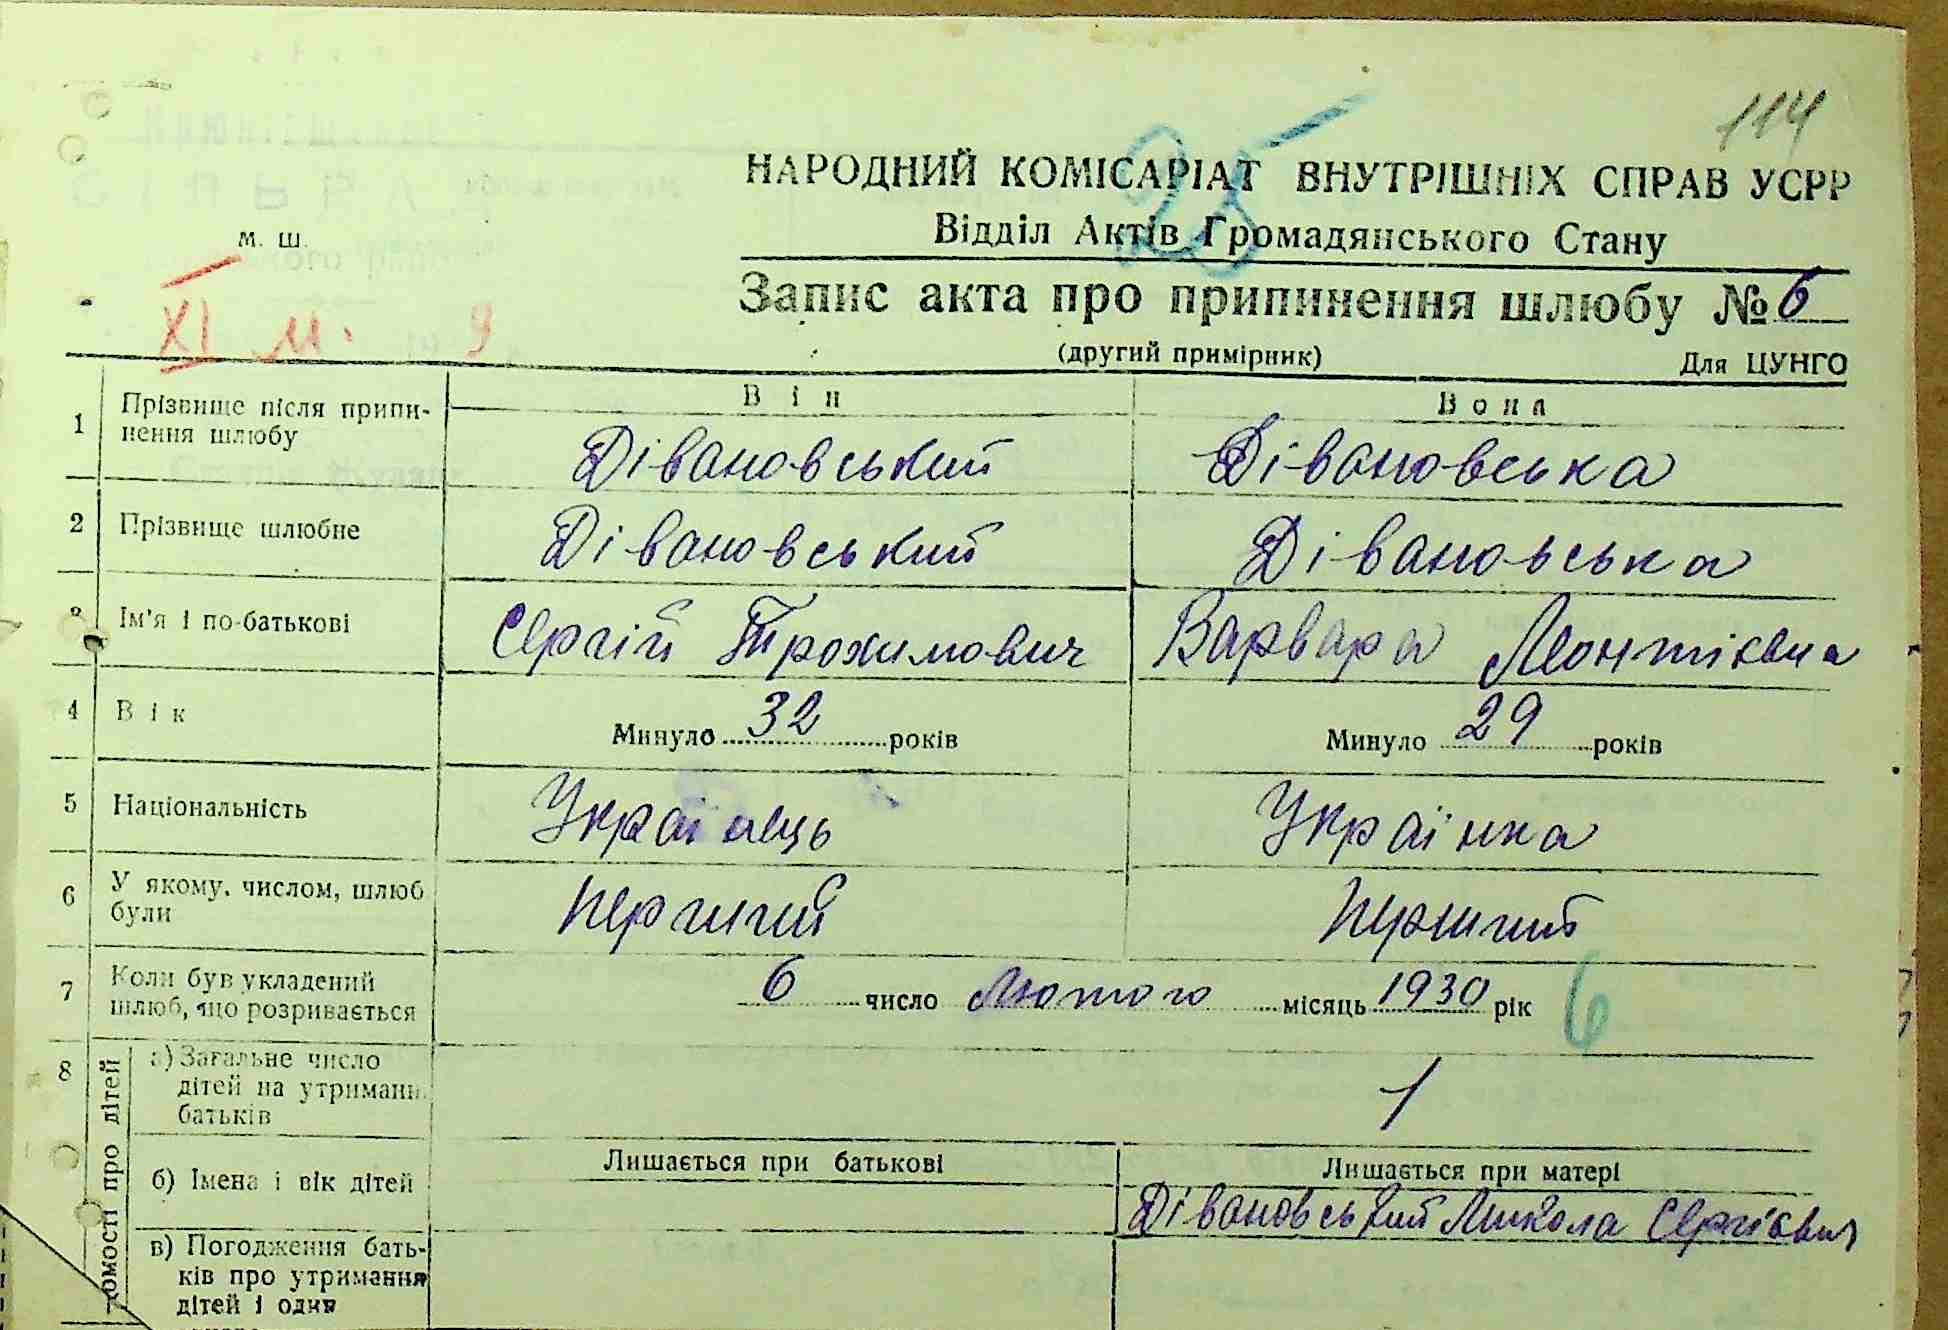 114
25
НАРОДНИЙ КОМІСАРІАТ ВНУТРІШНІХ СПРАВ УСРР
м. ш.
Відділ Актів Громадянського Стану
Запис акта про припинення шлюбу № 6
XI м. 9
(другий примірник) Для ЦУНГО
Він Вона
1 Прізвище після припи-
нення шлюбу Дівановський Дівановська
2 Прізвище шлюбне Дівановський Дівановська
3 Ім'я і по-батькові Сергій Трохимович Варвара Леонтієвна
4 Вік Минуло 32 років Минуло 29 років
5 Національність Українець Українка
6 У якому, числом, шлюб
були Перший Перший
7 Коли був укладений
шлюб, що розривається 6 число Лютого місяць 1930 рік 6
8 омості про дітей
а) Загальне число
дітей на утриманн
батьків 1
Лишається при батькові Лишається при матері
б) Імена і вік дітей Дівановський Микола Сергієвич
в) Погодження бать-
ків про утримання
дітей і один